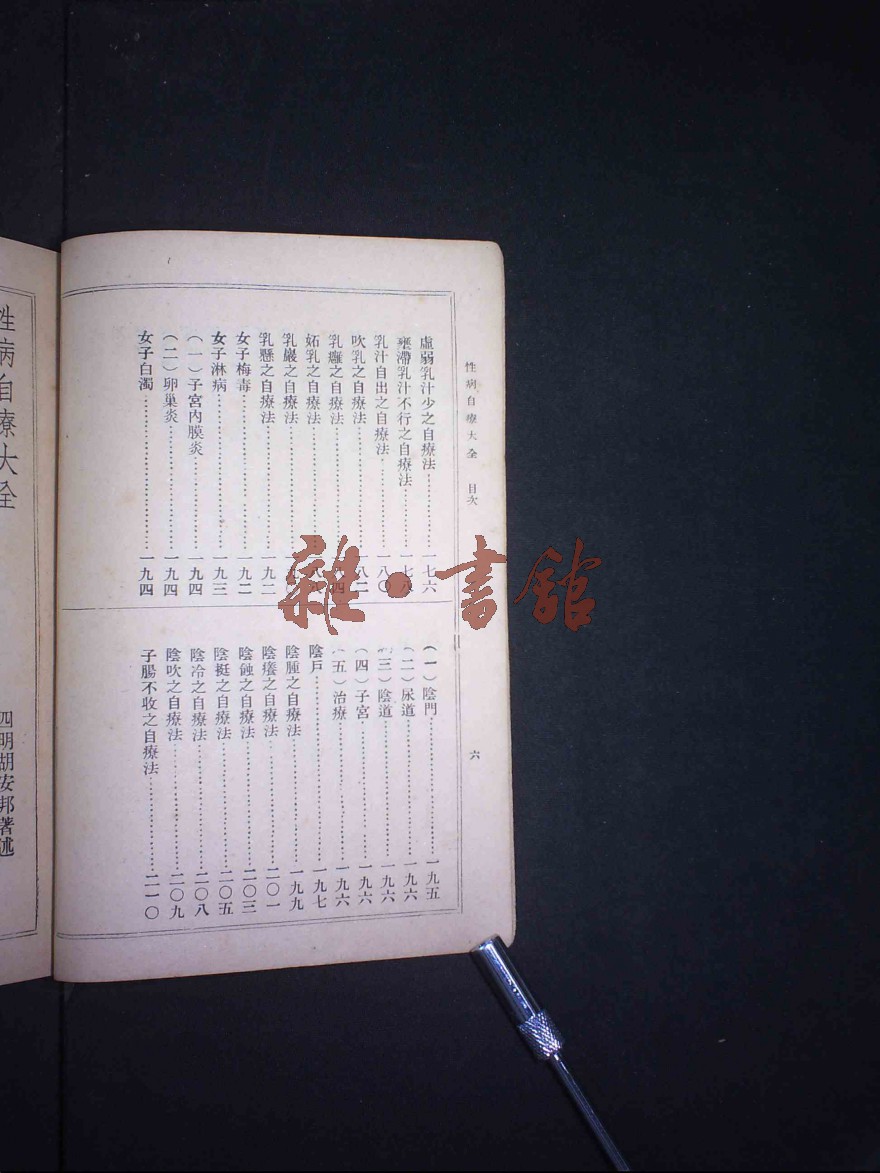 性病自療大全　目次
六
虛弱乳汁少之自療法⋯⋯一七六
壅滯乳汁不行之自療法⋯⋯一七八
乳汁自出之自療法⋯⋯一八〇
吹乳之自療法⋯⋯一八二
乳癰之自療法⋯⋯一八四
妬乳之自療法⋯⋯一八八
乳巖之自療法
乳懸之自療法⋯⋯一九二
女子梅毒⋯⋯一九二
女子淋病⋯⋯一九三
（一）子宮內膜炎⋯⋯一九四
（二）卵巢炎⋯⋯一九四
女子白濁⋯⋯一九四
（一）陰門⋯⋯一九五
（二）尿道⋯⋯一九六
（三）陰道⋯⋯一九六
（四）子宮⋯⋯一九六
（五）治療⋯⋯一九六
陰戶⋯⋯一九七
陰腫之自療法⋯⋯一九九
陰癢之自療法⋯⋯二〇一
陰蝕之自療法⋯⋯二〇三
陰挺之自療法⋯⋯二〇五
陰冷之自療法⋯⋯二〇八
陰吹之自療法⋯⋯二〇九
子腸不收之自療法⋯⋯二一〇
性病自療大全
四明胡安邦著述
雜·書館